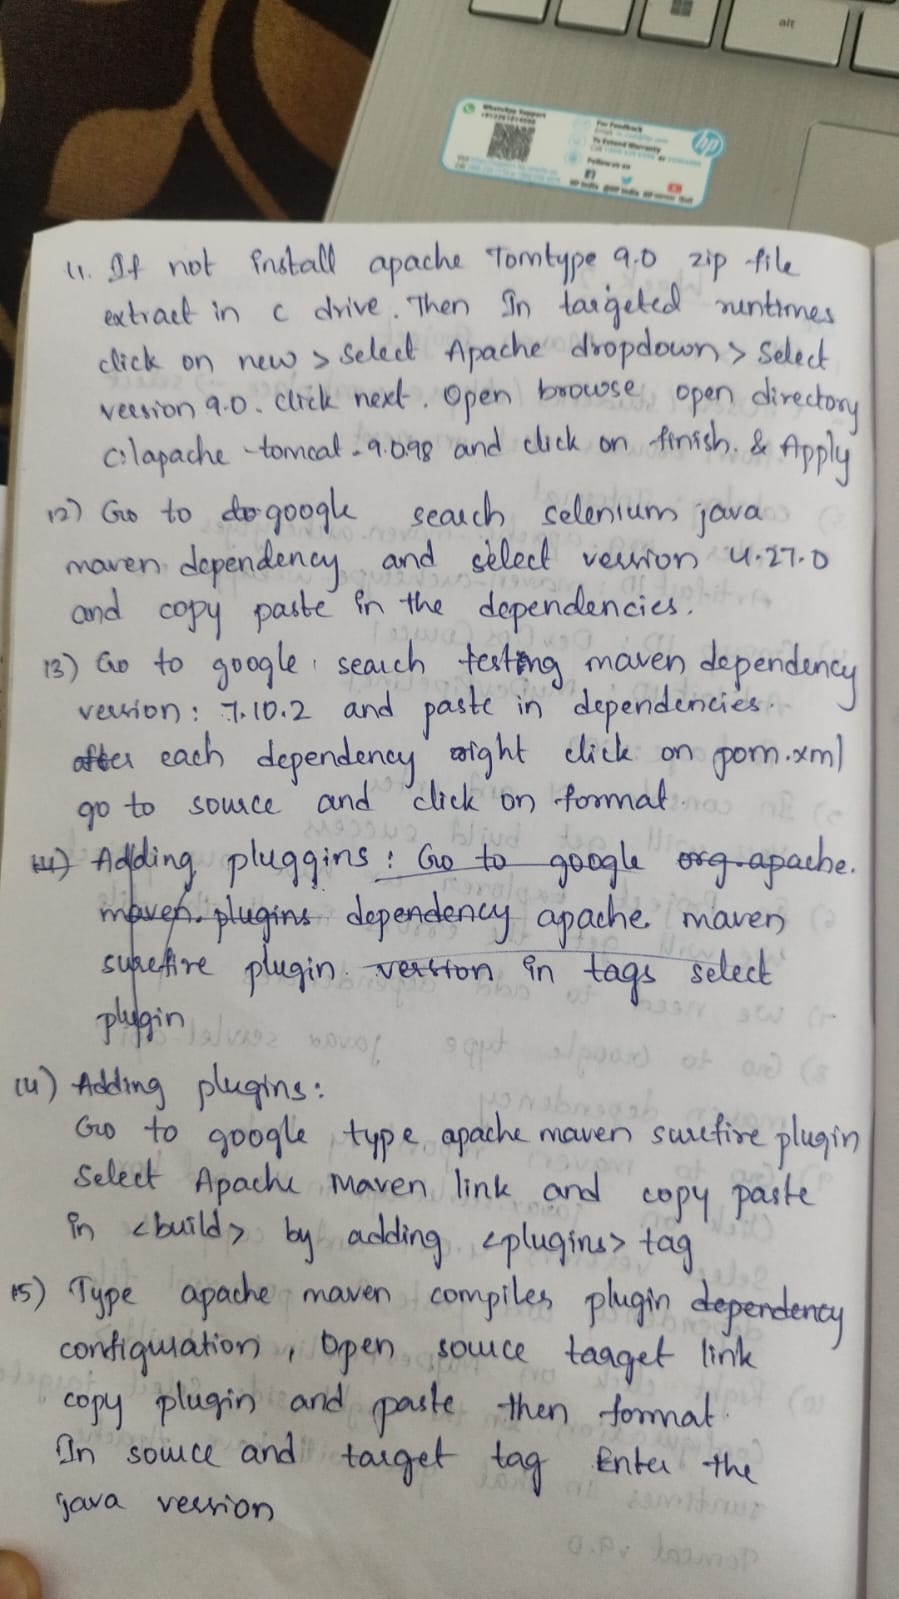 alt
WhatsApp Support
For Feedback
To Extend Warranty
Follow us on
hp
11. If not install apache Tomtype 9.0 zip file
extract in c drive. Then In taigeted runtimes
click on new > Select Apache dropdown > Select
version 9.0. Click next. Open browse open directory
C:\apache-tomcat-9.0.98 and click on finish. & Apply
12) Go to do google search selenium java
maven dependency and select version 4.27.0
and copy paste in the dependencies.
13) Go to google, search testing maven dependency
version: 7.10.2 and paste in dependencies.
after each dependency right click on pom.xml
go to source and click on format.
14) Adding pluggins: Go to google org.apache.
maven.plugins dependency apache maven
surefire plugin version in tags select
plugin
14) Adding plugins:
Go to google type apache maven surefire plugin
Select Apache Maven link and copy paste
in <build> by adding <plugins> tag
15) Type apache maven compiler plugin dependency
configuration, Open source target link
copy plugin and paste then format.
In source and target tag Enter the
java version